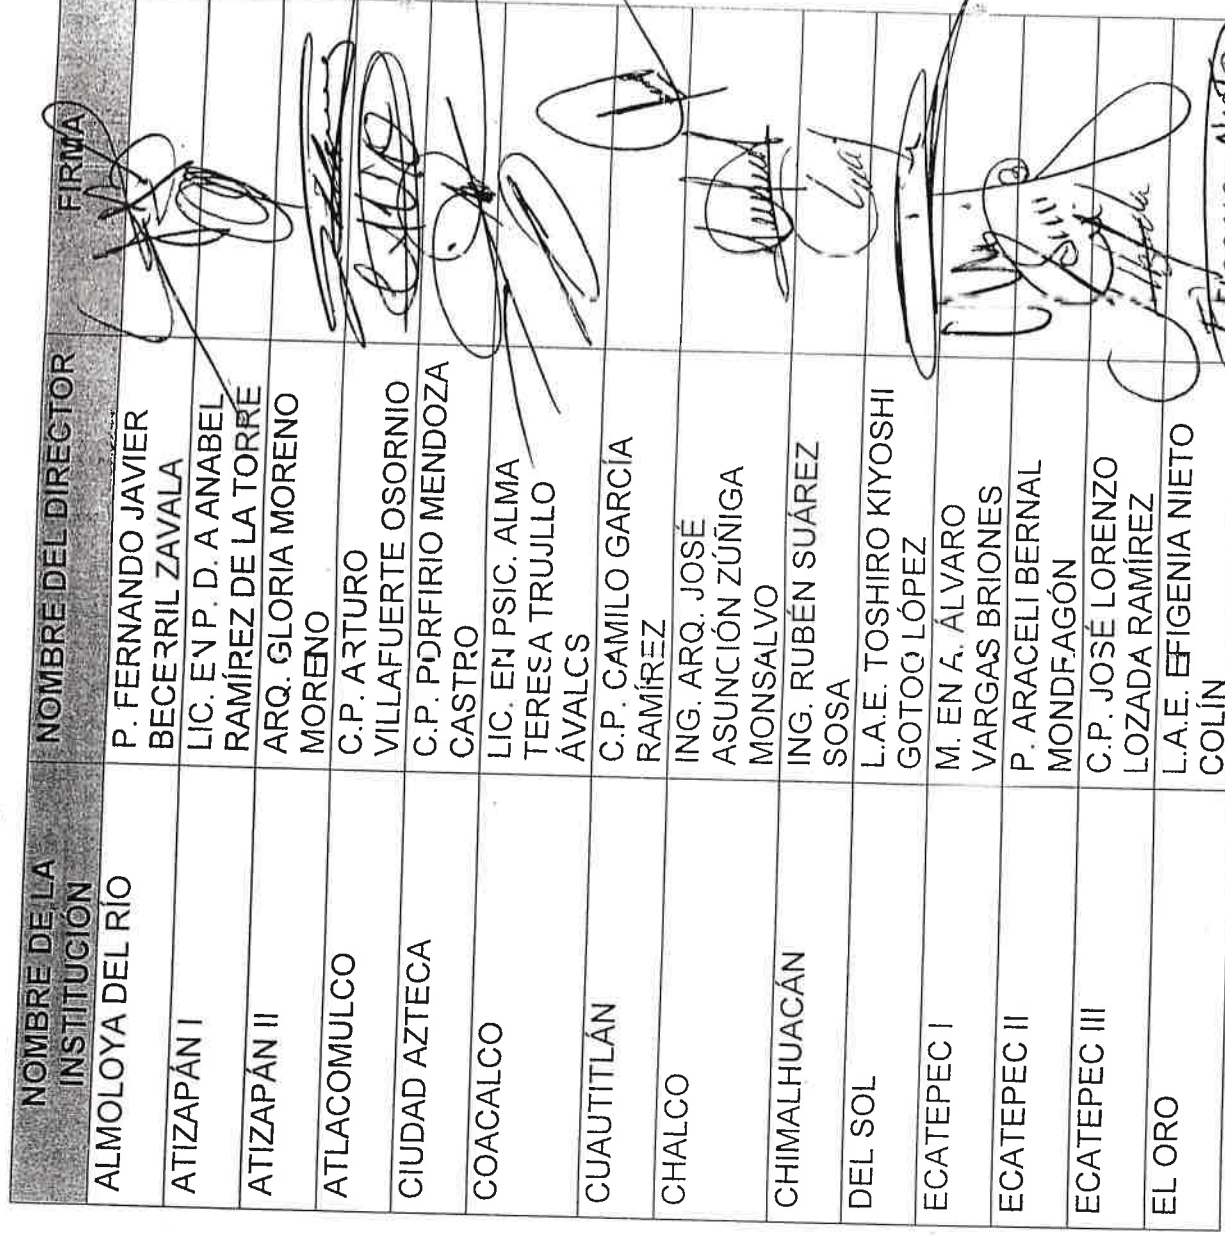 NOMBRE DE LA
INSTITUCIÓN
NOMBRE DEL DIRECTOR
FIRMA
ALMOLOYA DEL RÍO
P. FERNANDO JAVIER
BECERRIL ZAVALA
ATIZAPÁN I
LIC. EN P. D. A ANABEL
RAMÍREZ DE LA TORRE
ATIZAPÁN II
ARQ. GLORIA MORENO
MORENO
ATLACOMULCO
C.P. ARTURO
VILLAFUERTE OSORNIO
CIUDAD AZTECA
C.P. PORFIRIO MENDOZA
CASTRO
COACALCO
LIC. EN PSIC. ALMA
TERESA TRUJILLO
ÁVALCS
CUAUTITLÁN
C.P. CAMILO GARCÍA
RAMÍREZ
CHALCO
ING. ARQ. JOSÉ
ASUNCIÓN ZÚÑIGA
MONSALVO
CHIMALHUACÁN
ING. RUBÉN SUÁREZ
SOSA
DEL SOL
L.A.E. TOSHIRO KIYOSHI
GOTOO LÓPEZ
ECATEPEC I
M. EN A. ÁLVARO
VARGAS BRIONES
ECATEPEC II
P. ARACELI BERNAL
MONDFAGÓN
ECATEPEC III
C.P. JOSÉ LORENZO
LOZADA RAMÍREZ
EL ORO
L.A.E. EFIGENIA NIETO
COLÍN